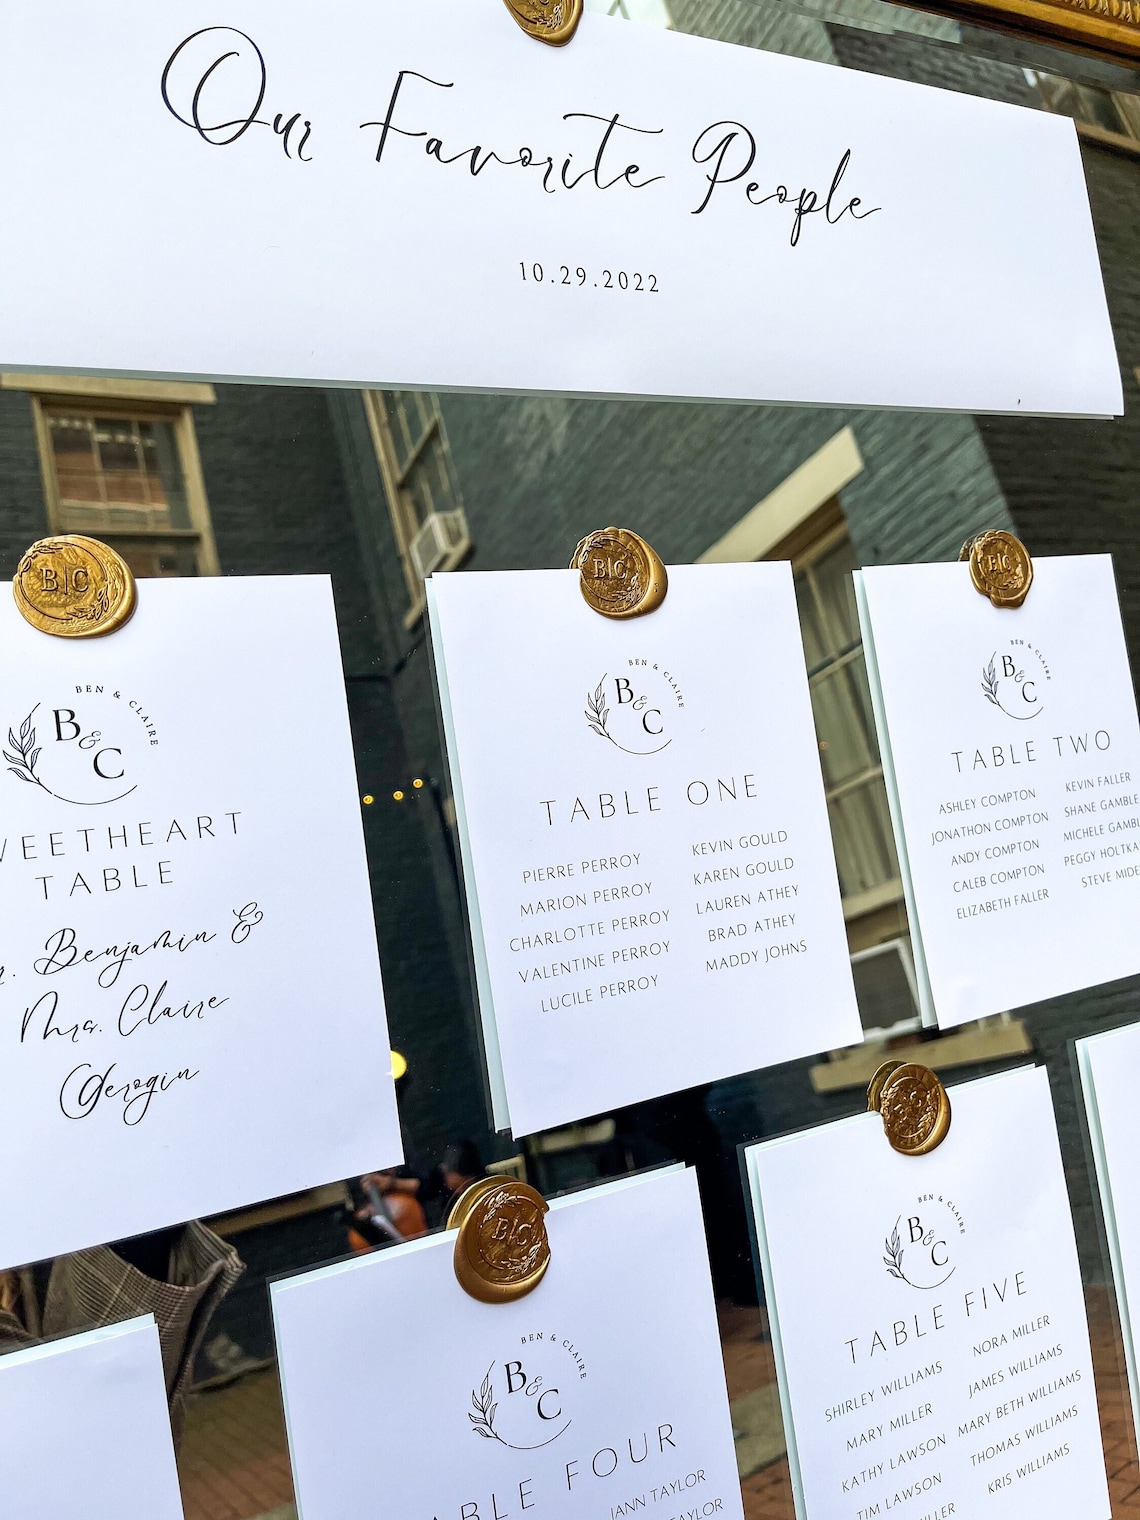 Our Favorite People
10.29.2022
B|C
BEN & CLAIRE
B&C
TABLE
Benjamin &
Mrs. Claire
Gerogin
B|C
BEN & CLAIRE
B&C
TABLE ONE
PIERRE PERROY
MARION PERROY
CHARLOTTE PERROY
VALENTINE PERROY
LUCILE PERROY
KEVIN GOULD
KAREN GOULD
LAUREN ATHEY
BRAD ATHEY
MADDY JOHNS
B|C
BEN & CLAIRE
B&C
TABLE TWO
ASHLEY COMPTON
JONATHON COMPTON
ANDY COMPTON
CALEB COMPTON
ELIZABETH FALLER
KEVIN FALLER
SHANE GAMBLE
MICHELE
PEGGY
STEVE
B|C
BEN & CLAIRE
B&C
FOUR
TAYLOR
TAYLOR
BEN & CLAIRE
B&C
TABLE FIVE
SHIRLEY WILLIAMS
MARY MILLER
KATHY LAWSON
TIM LAWSON
NORA MILLER
JAMES WILLIAMS
MARY BETH WILLIAMS
THOMAS WILLIAMS
KRIS WILLIAMS